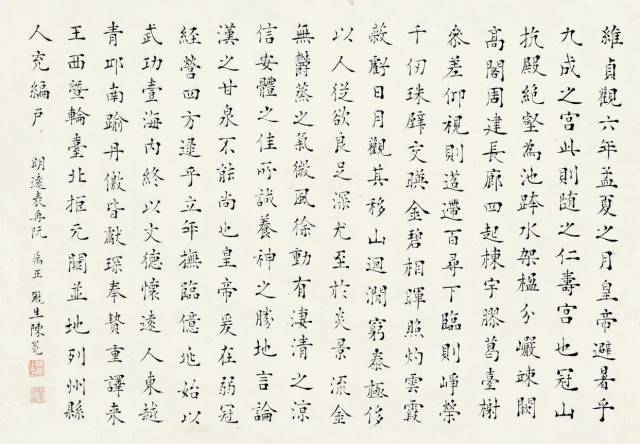 維貞觀六年孟夏之月皇帝避暑乎
九成之宮此則隨之仁壽宮也冠山
抗殿絕壑為池跨水架楹分巖竦闕
高閣周建長廊四起棟宇膠葛臺榭
參差仰視則迢遰百尋下臨則崢嶸
千仞珠璧交暎金碧相暉照灼雲霞
蔽虧日月觀其移山迴澗窮泰極侈
以人從欲良足深尤至於炎景流金
無鬱蒸之氣微風徐動有淒清之涼
信安體之佳所誠養神之勝地言論
漢之甘泉不能尚也皇帝爰在弱冠
經營四方逮乎立年撫臨億兆始以
武功壹海內終以文德懷遠人東越
青邱南踰丹徼皆獻琛奉贄重譯来
王西曁輪臺北拒元闕並地列州縣
人充編戶 明遠表再阮 屬正 生陳冕